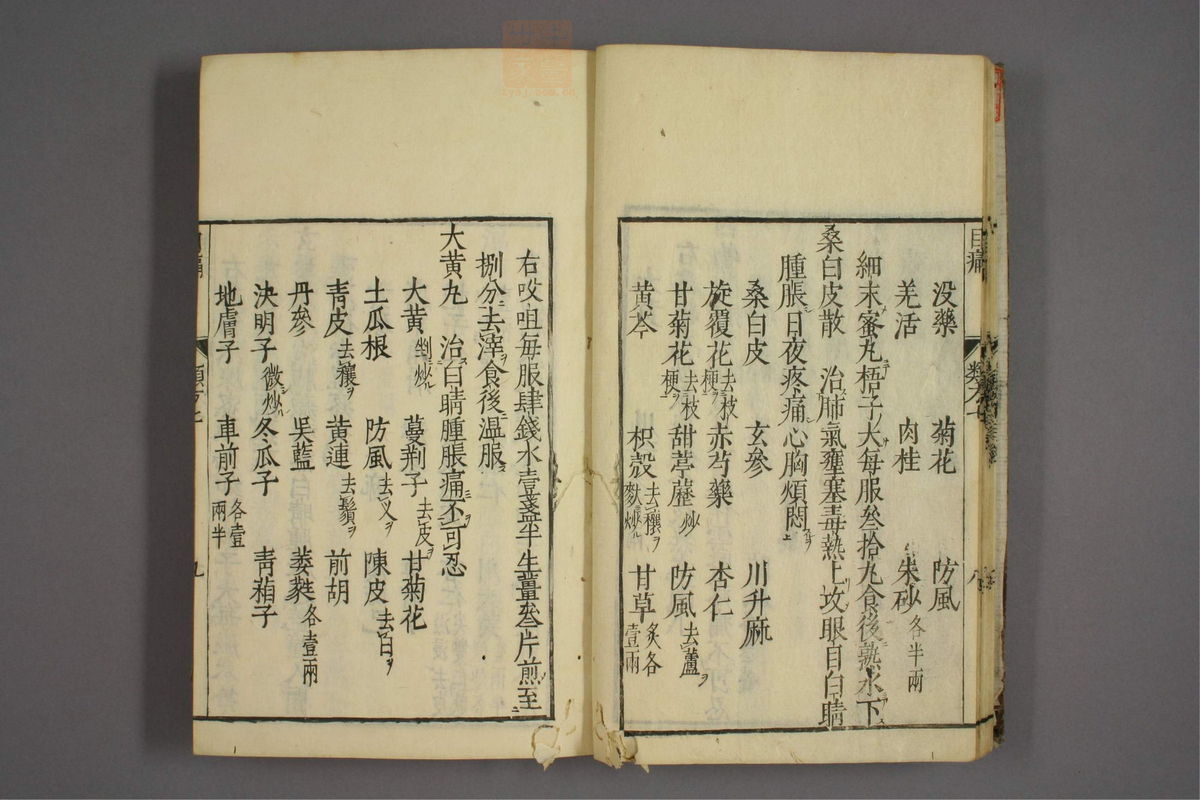 目痛 類方七 八
没藥 菊花 防風
羌活 肉桂 朱砂各半兩
細末蜜丸梧子大每服叁拾丸食後熟水下
桑白皮散 治肺氣壅塞毒熱上攻眼目白睛
腫脹日夜疼痛心胸煩悶
桑白皮 玄參 川升麻
旋覆花去枝梗 赤芍藥 杏仁
甘菊花去枝梗 甜葶藶炒 防風去蘆
黄芩 枳殼去穰麩炒 甘草炙各壹兩
右㕮咀每服肆錢水壹盞半生薑叁片煎至
捌分去滓食後温服
大黄丸 治白睛腫脹痛不可忍
大黄剉炒 蔓荆子去皮 甘菊花
土瓜根 防風去义 陳皮去白
青皮去穰 黄連去鬚 前胡
丹參 吳藍 萎蕤各壹兩
決明子微炒 冬瓜子 青葙子
地膚子 車前子各壹兩半
目痛 類方七 九